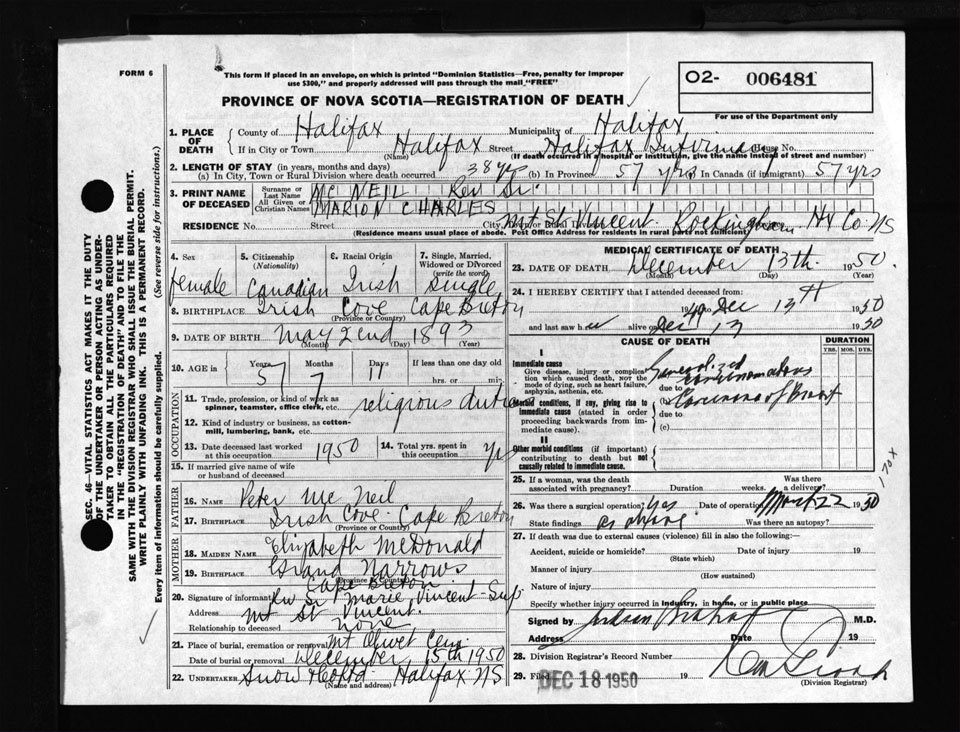 FORM 6
This form if placed in an envelope, on which is printed "Dominion Statistics—Free, penalty for improper
use $300," and properly addressed will pass through the mail "FREE"
O2- 006481
PROVINCE OF NOVA SCOTIA—REGISTRATION OF DEATH
For use of the Department only
1. PLACE OF DEATH
County of Halifax Municipality of Halifax
If in City or Town Halifax (Name) Street Halifax Infirmary House No.
(If death occurred in a hospital or institution, give the name instead of street and number)
2. LENGTH OF STAY (in years, months and days)
(a) In City, Town or Rural Division where death occurred 38 yrs (b) In Province 57 yrs (c) In Canada (if immigrant) 57 yrs
3. PRINT NAME OF DECEASED
Surname or Last Name MC NEIL Rev Sr.
All Given or Christian Names MARION CHARLES
RESIDENCE No. Street City, Town or Rural Division Mt St Vincent Rockingham Hx Co NS
(Residence means usual place of abode. Post Office Address for residents in rural parts not sufficient)
4. Sex female
5. Citizenship (Nationality) Canadian
6. Racial Origin Irish
7. Single, Married, Widowed or Divorced (write the word) Single
8. BIRTHPLACE Irish Cove Cape Breton
(Province or Country)
9. DATE OF BIRTH May 22nd 1893
(Month) (Day)
10. AGE in Years 57 Months 7 Days 11 If less than one day old
hrs. or min.
OCCUPATION
11. Trade, profession, or kind of work as
spinner, teamster, office clerk, etc. religious duties
12. Kind of industry or business, as cotton-
mill, lumbering, bank, etc.
13. Date deceased last worked
at this occupation 1950
14. Total yrs. spent in
this occupation yrs
15. If married give name of wife
or husband of deceased
FATHER
16. NAME Peter Mc Neil
17. BIRTHPLACE Irish Cove Cape Breton
(Province or Country)
MOTHER
18. MAIDEN NAME Elizabeth McDonald
19. BIRTHPLACE Grand Narrows
Cape Breton
(Province or Country)
20. Signature of informant Rev Sr Marie Vincent - Sup
Address Mt St Vincent
Relationship to deceased none
21. Place of burial, cremation or removal Mt Olivet Cem.
Date of burial or removal December 15th 1950
22. UNDERTAKER Snow & Co Ltd Halifax NS
(Name and address)
MEDICAL CERTIFICATE OF DEATH
23. DATE OF DEATH December 13th 1950.
(Month) (Day) (Year)
24. I HEREBY CERTIFY that I attended deceased from:
1949 to Dec 13th 1950
and last saw her alive on Dec 13 1950
CAUSE OF DEATH
DURATION
YRS. MOS. DYS.
I
Immediate cause
Give disease, injury or complica-
tion which caused death, not the
mode of dying, such as heart failure,
asphyxia, asthenia, etc.
(a) Generalized carcinomatosis
due to
Morbid conditions, if any, giving rise to
immediate cause (stated in order
proceeding backwards from im-
mediate cause).
(b) Carcinoma of Breast
due to
(c)
II
Other morbid conditions (if important)
contributing to death but not
causally related to immediate cause.
170X
25. If a woman, was the death
associated with pregnancy? Duration weeks.
Was there
a delivery?
26. Was there a surgical operation? Yes Date of operation March 22 1950
State findings as above Was there an autopsy?
27. If death was due to external causes (violence) fill in also the following:—
Accident, suicide or homicide? Date of injury 19
(State which)
Manner of injury
(How sustained)
Nature of injury
Specify whether injury occurred in industry, in home, or in public place
Signed by M.D.
Address Date 19
28. Division Registrar's Record Number
29. Filed DEC 18 1950 19
(Division Registrar)
SEC. 46—VITAL STATISTICS ACT MAKES IT THE DUTY
OF THE UNDERTAKER OR PERSON ACTING AS UNDER-
TAKER TO OBTAIN ALL THE PARTICULARS REQUIRED
IN THE "REGISTRATION OF DEATH" AND TO FILE THE
SAME WITH THE DIVISION REGISTRAR WHO SHALL ISSUE THE BURIAL PERMIT.
WRITE PLAINLY WITH UNFADING INK. THIS IS A PERMANENT RECORD.
Every item of information should be carefully supplied. (See reverse side for instructions.)